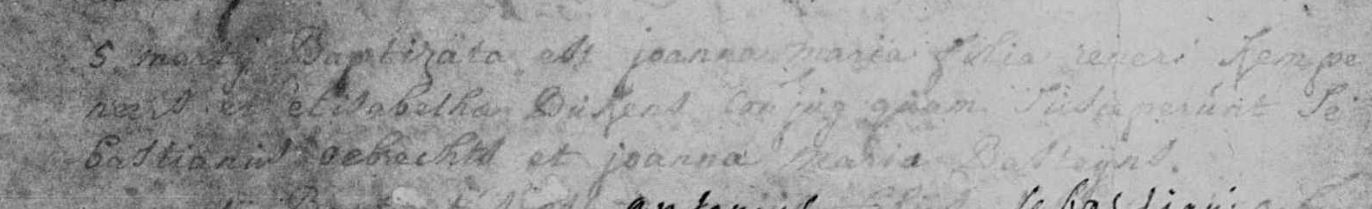 5 martij Baptizata est joanna maria filia reneri Kempe
ners et elisabetha Dukens Conjug quam Susceperunt Se
bastianus gebrechts et joanna maria Basteyns.
antonius sebastiani